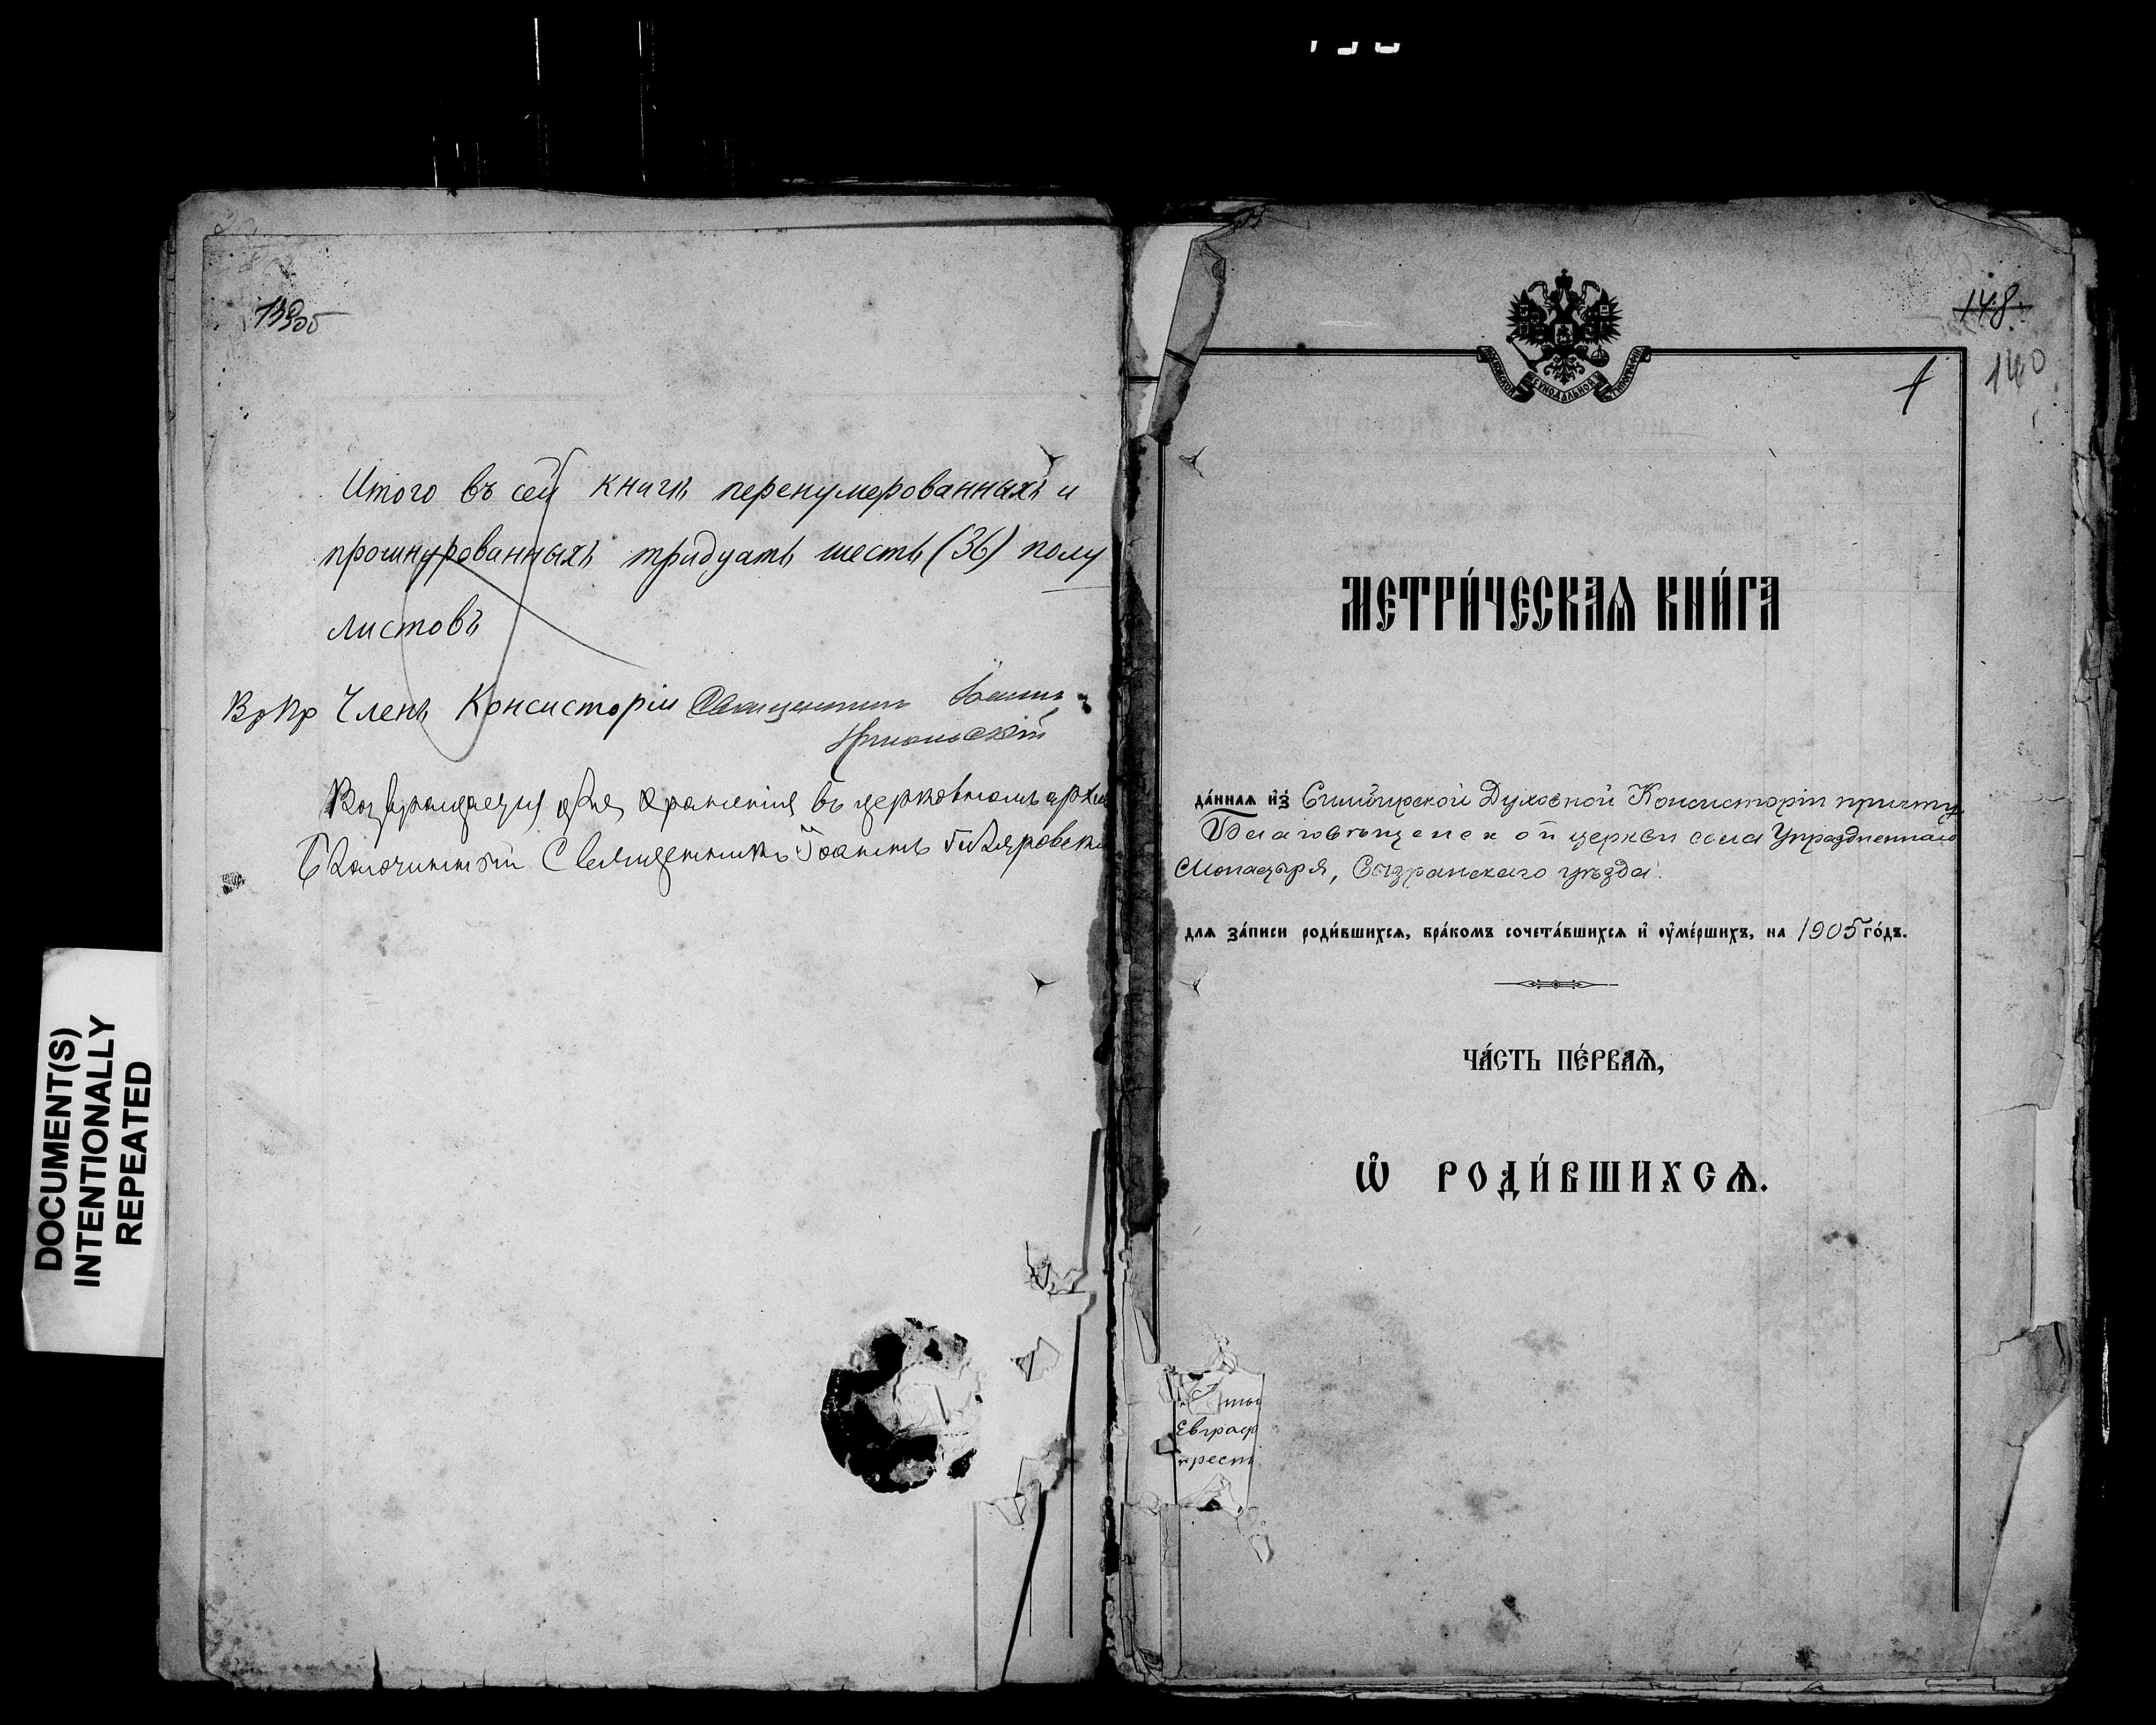 139об
Итого въ сей книгѣ перенумерованныхъ и
прошнурованныхъ тридцать шесть (36) полу
листовъ
Вр Пр Членъ Консисторіи Священникъ Іоаннъ
Возвращается для храненія въ церковномъ архи
Благочинный Священникъ Іоаннъ
DOCUMENT(S)
INTENTIONALLY
REPEATED
148
140
1
МОСКОВСКОЙ СѴНОДАЛЬНОЙ ТИПОГРАФІИ
МЕТРИ́ЧЕСКАѦ КНИ́ГА
да́ннаѧ и҆з̾ Симбирской Духовной Консисторіи причту
Благовѣщенской церкви села Упраздненнаго
Монастыря, Сызранскаго уѣзда.
для за́писи роди́вшихсѧ, бра́комъ сочета́вшихсѧ и҆ ᲂу҆ме́ршихъ, на 1905 го́дъ.
ЧА́СТЬ ПЕ́РВАѦ,
Ѡ҆ РОДИ́ВШИХСѦ.
Евграф
крест